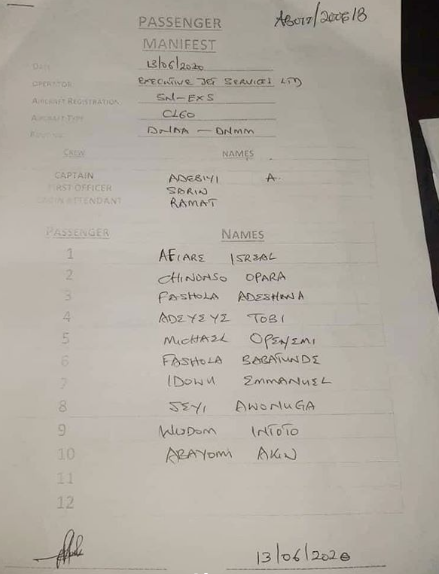 PASSENGER
MANIFEST
DATE 13/06/2020
OPERATOR EXECUTIVE JET SERVICES LTD
AIRCRAFT REGISTRATION 5N-EXS
AIRCRAFT TYPE CL60
DNAA – DNMM
CREW NAMES
CAPTAIN ADEBIYI A.
FIRST OFFICER SORIN
CABIN ATTENDANT RAMAT
PASSENGER NAMES
1 AFIARE ISREAL
2 CHINONSO OPARA
3 FASHOLA ADESHINA
4 ADEYEYE TOBI
5 MICHAEL OPEYEMI
6 FASHOLA BABATUNDE
7 IDOWU EMMANUEL
8 SEYI AWONUGA
9 WUDOM INTOTO
10 ABAYOMI AKIN
11
12
13/06/2020